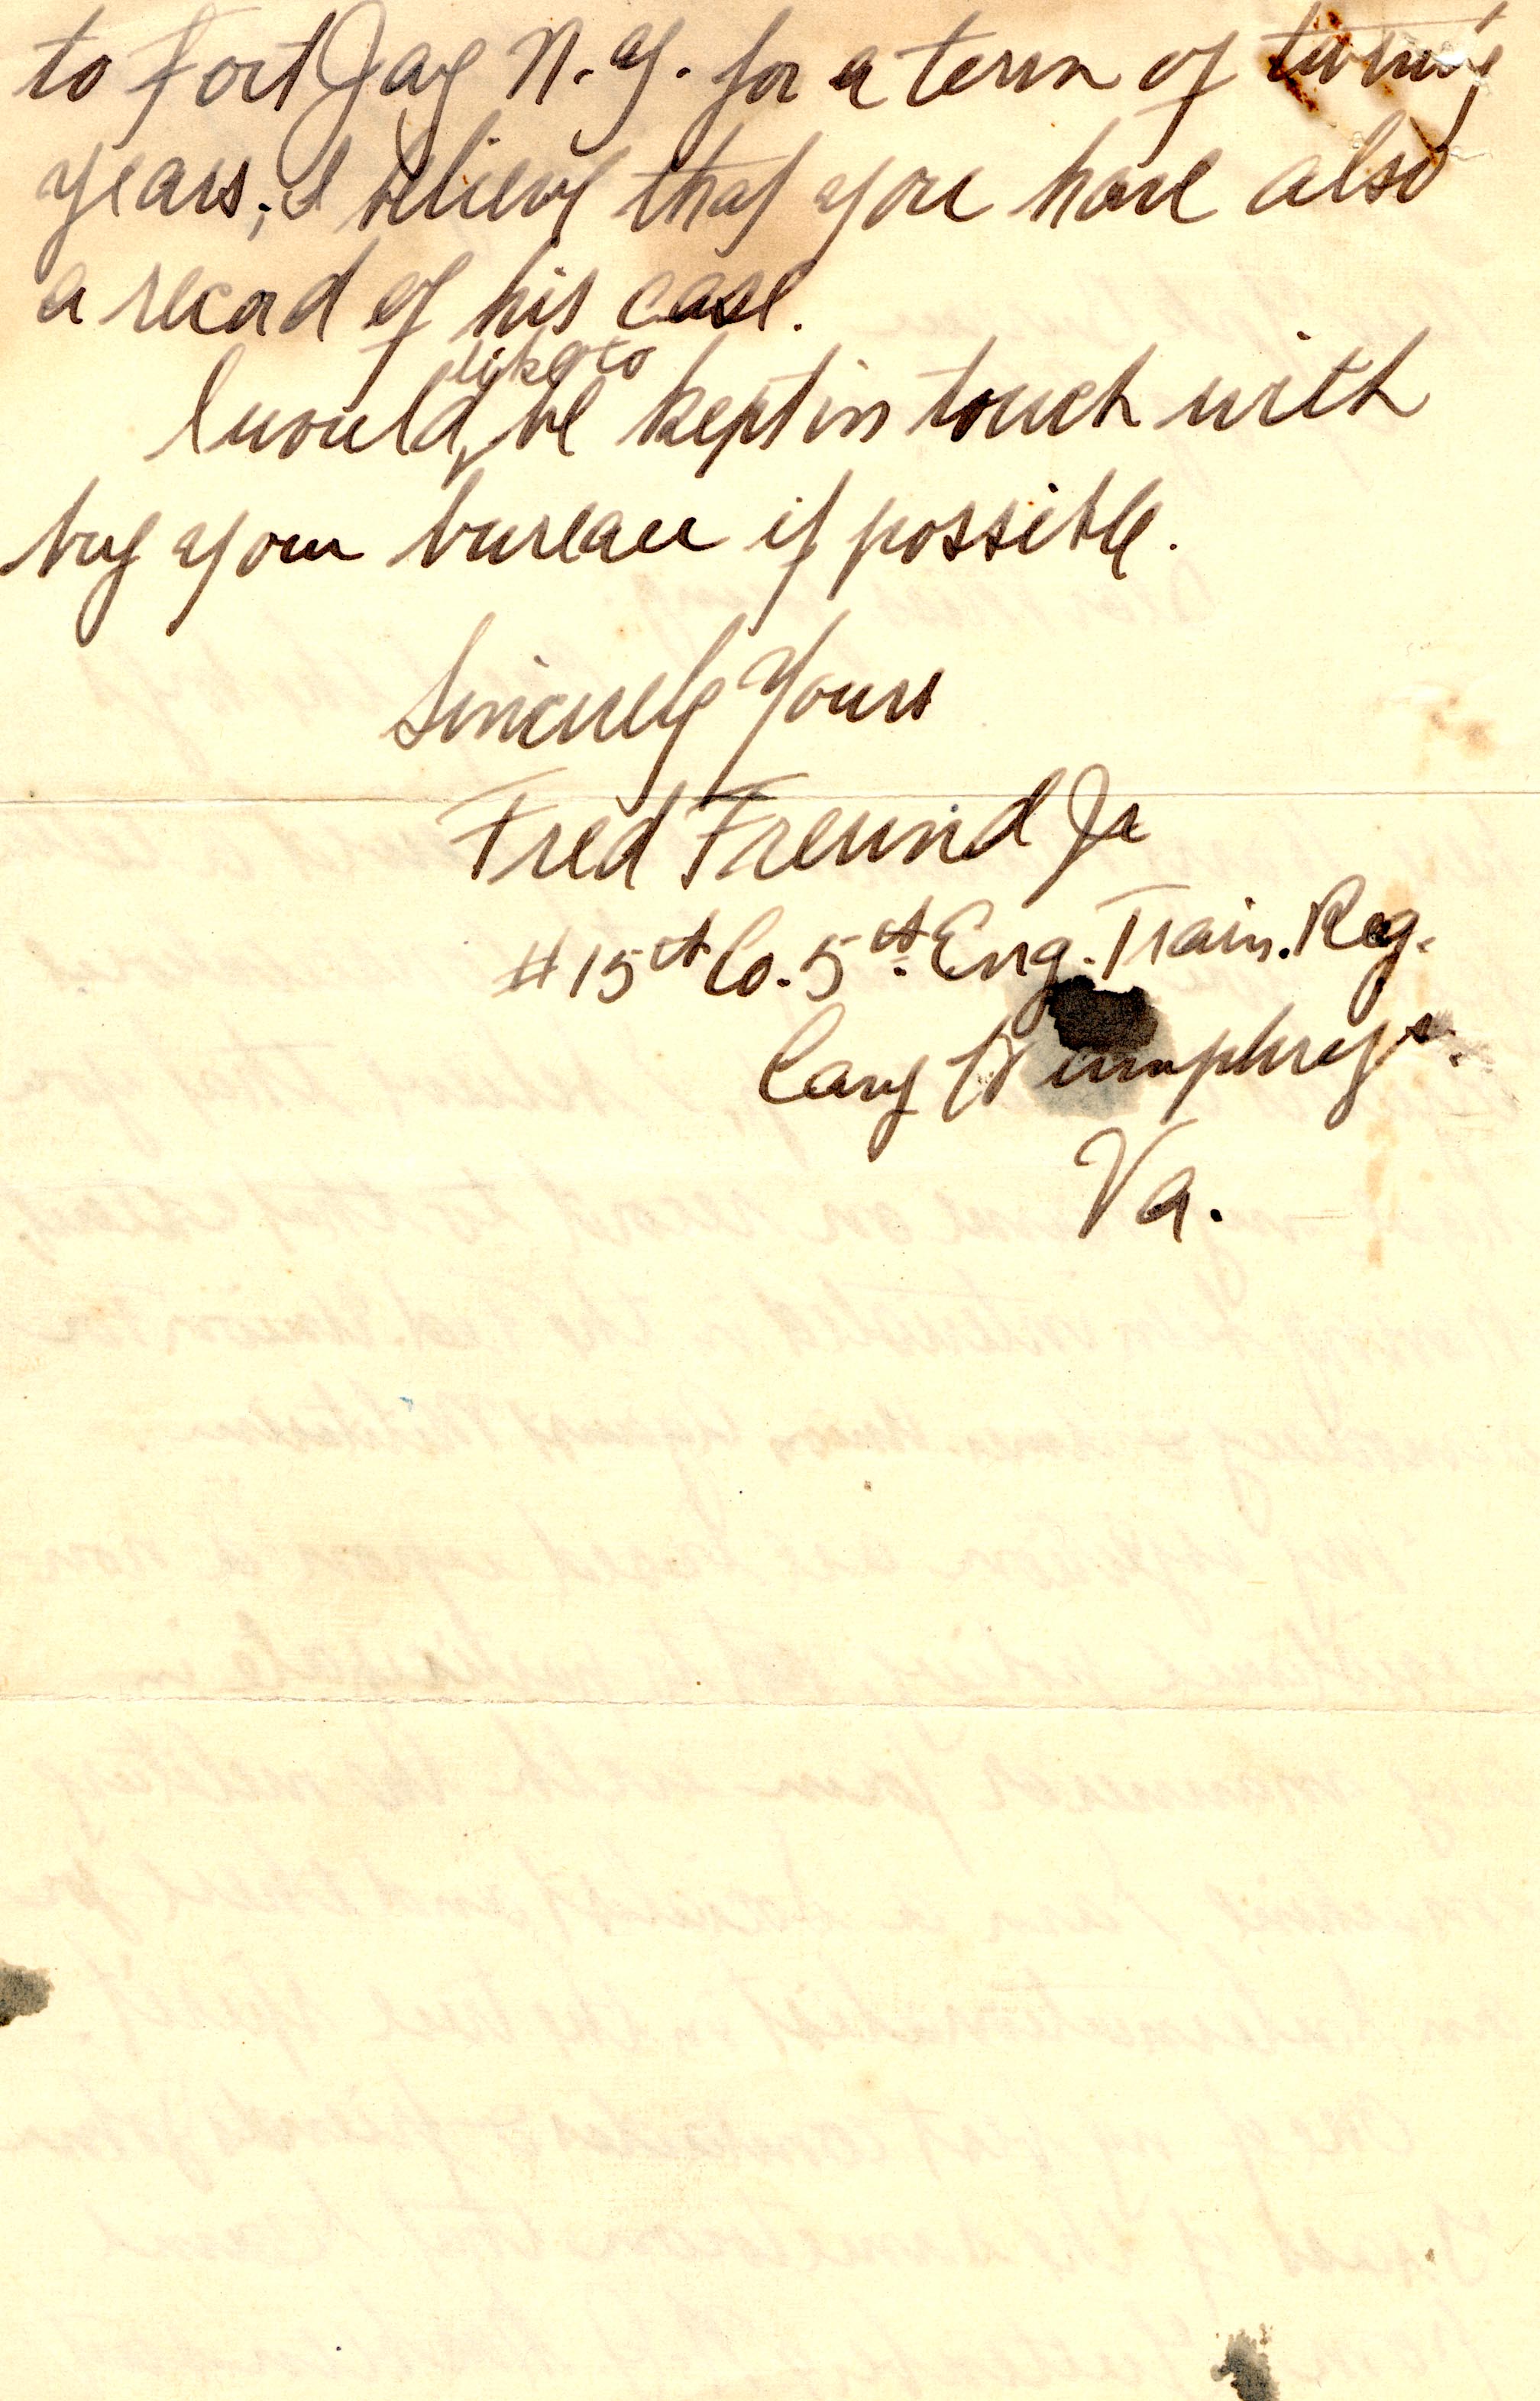 to Fort Jay N.Y. for a term of twenty
years; I believe that you have also
a record of his case.
I would like to be kept in touch with
by your bureau if possible.
Sincerely Yours
Fred Freund Jr
#15th Co. 5th Eng. Train. Reg.
Camp Humphreys.
Va.